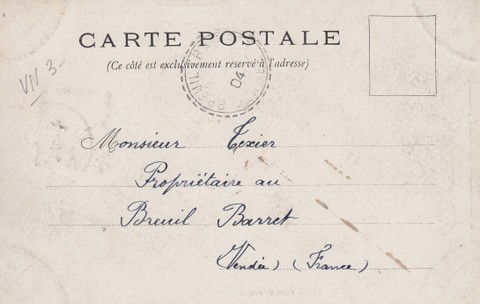 CARTE POSTALE
(Ce côté est exclusivement réservé à l'adresse)
VN 3-
BREUIL-B
04
Monsieur Texier
Propriétaire au
Breuil Barret
(Vendée) (France)